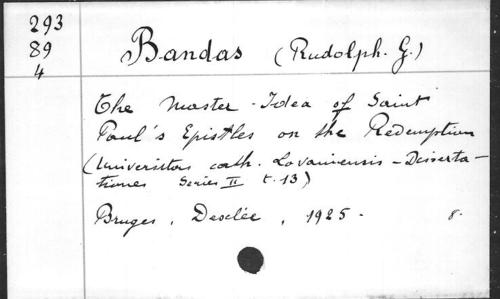 293
89
4
Bandas (Rudolph. G.)
The Master-Idea of Saint
Paul's Epistles on the Redemption
(Universitas cath. Lovaniensis – Disserta-
tiones Series II t. 13)
Bruges, Desclée, 1925. 8.